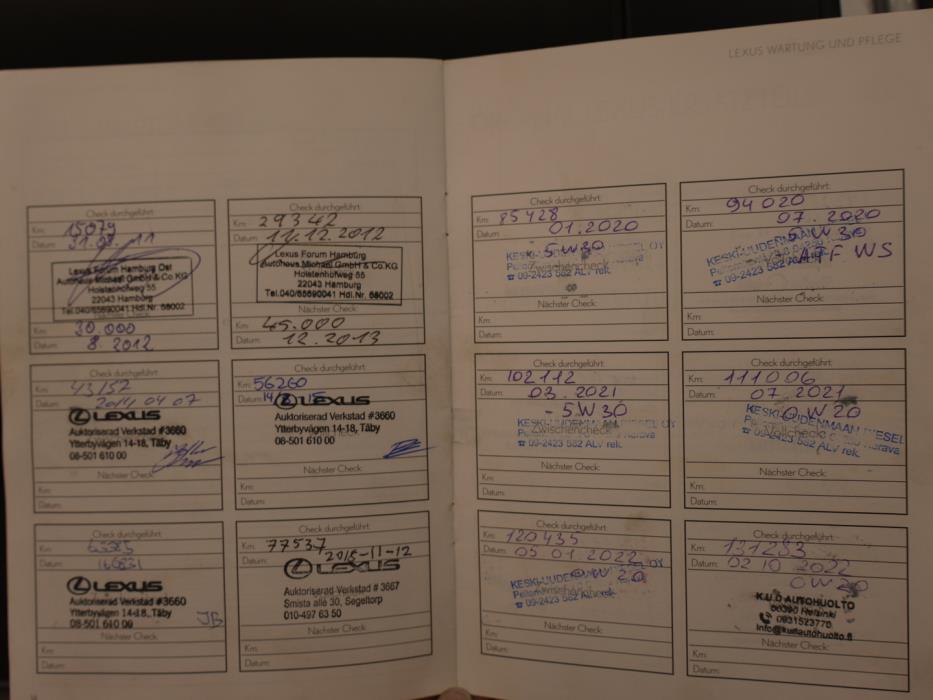 LEXUS WARTUNG UND PFLEGE
Check durchgeführt:
Km: 15079
Datum: 31.08.11
Lexus Forum Hamburg Ost
Autohaus Michael GmbH & Co.KG
Holstenhofweg 55
22043 Hamburg
Tel.040/65690041 Hdl.Nr. 68002
Km: 30.000
Datum: 8.2012
Check durchgeführt:
Km: 29342
Datum: 11.12.2012
Lexus Forum Hamburg
Autohaus Michael GmbH & Co.KG
Holstenhofweg 55
22043 Hamburg
Tel.040/65690041 Hdl.Nr. 68002
Nächster Check:
Km: 45.000
Datum: 12.2013
Check durchgeführt:
Km: 43152
Datum: 2014 04 07
LEXUS
Auktoriserad Verkstad #3660
Ytterbyvägen 14-18, Täby
08-501 610 00
Nächster Check:
Km:
Datum:
Check durchgeführt:
Km: 56260
Datum: 14
LEXUS
Auktoriserad Verkstad #3660
Ytterbyvägen 14-18, Täby
08-501 610 00
Nächster Check:
Km:
Datum:
Check durchgeführt:
Km:
Datum:
LEXUS
Auktoriserad Verkstad #3660
Ytterbyvägen 14-18, Täby
08-501 610 00
JB
Nächster Check:
Km:
Datum:
Check durchgeführt:
Km: 77537
2015-11-12
LEXUS
Auktoriserad Verkstad # 3667
Smista allé 30, Segeltorp
010-497 63 50
Nächster Check:
Km:
Datum:
Check durchgeführt:
Km: 85428
Datum: 01.2020
5W30
KESKI-UUDENMAAN OY
Zwischencheck
☎ 09-2423 582 ALV rek.
Nächster Check:
Km:
Datum:
Check durchgeführt:
Km: 94020
Datum: 07.2020
5W30
KESKI-UUDENMAAN
ATF WS
☎ 09-2423 582
Nächster Check:
Km:
Datum:
Check durchgeführt:
Km: 102112
Datum: 03.2021
- 5W30
KESKI-UUDENMAAN
Zwischencheck
☎ 09-2423 582 ALV rek.
Nächster Check:
Km:
Datum:
Check durchgeführt:
Km: 111006
Datum: 07.2021
0W20
KESKI-UUDENMAAN DIESEL
Vollcheck
☎ 09-2423 582 ALV rek.
Nächster Check:
Km:
Datum:
Check durchgeführt:
Km: 120435
Datum: 05 01 2022
KESKI-UUDENMAAN OY
0W20
☎ 09-2423 582 ALV rek.
Nächster Check:
Km:
Datum:
Check durchgeführt:
Km: 131283
Datum: 02 10 2022
0W20
K.U.D AUTOHUOLTO
00390 Helsinki
0931523770
Nächster Check:
Km:
Datum: